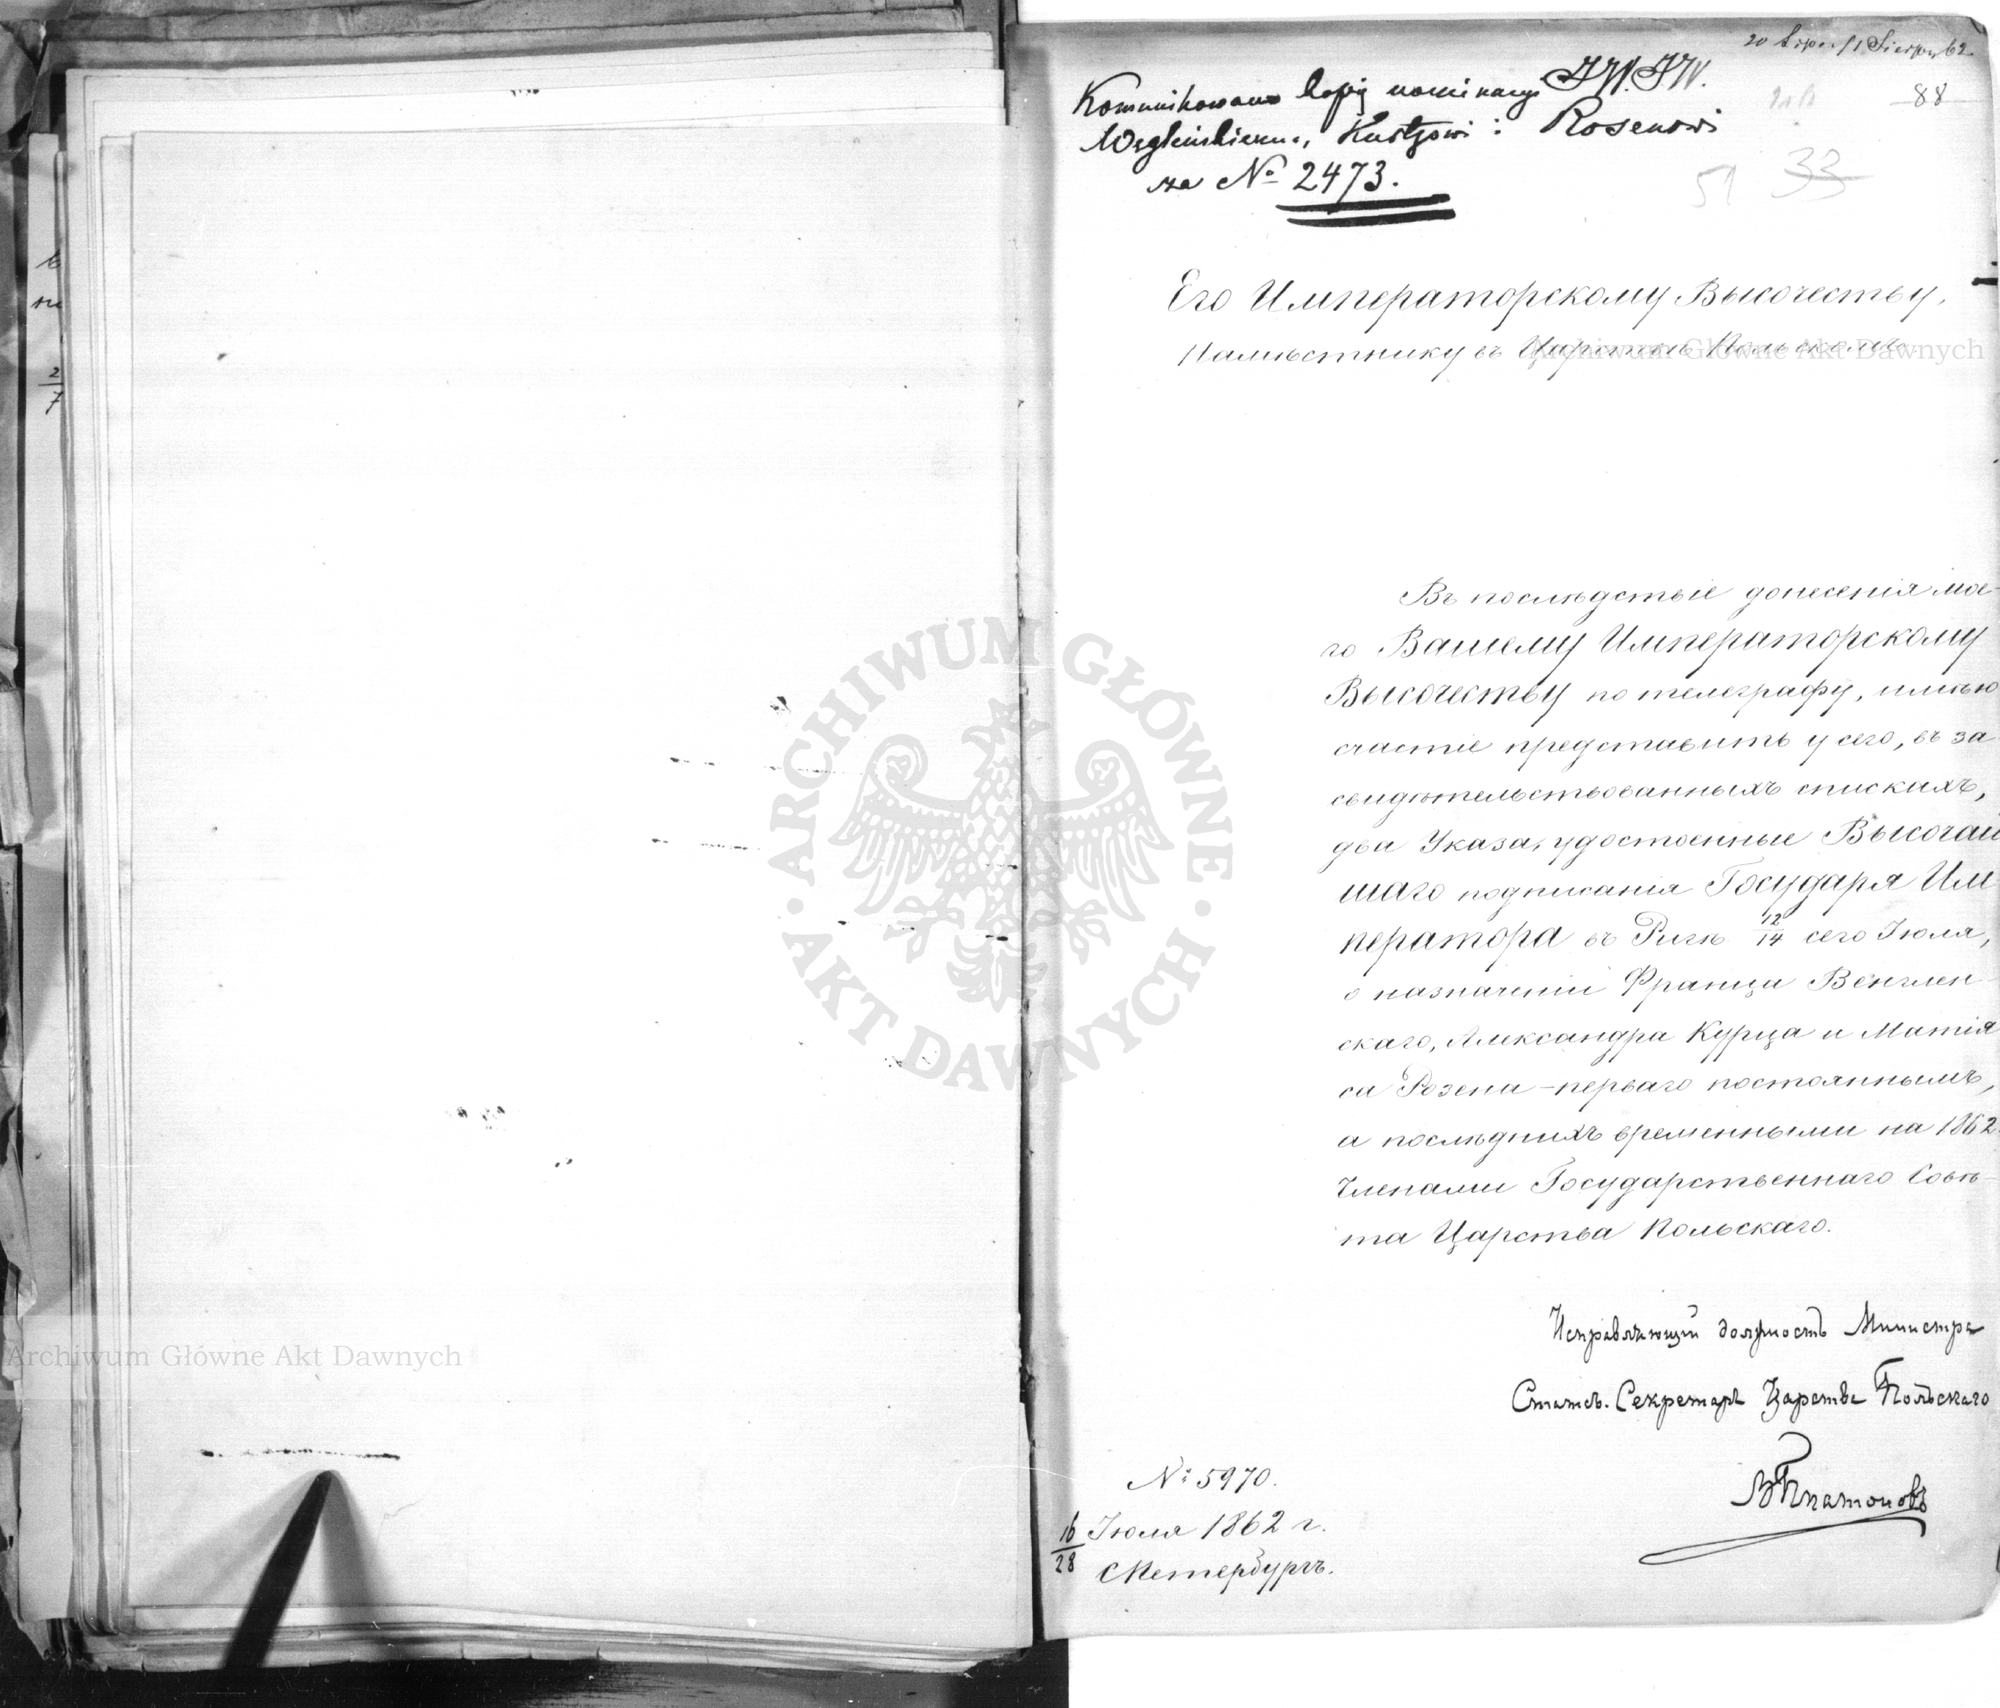 20 Lipca / 1 Sierpn. 62.
88
Komunikowano kopię nominacyi JW. JW.
Węgleńskiemu, Kurtzowi i Rosenowi
za № 2473.
51 33
Его Императорскому Высочеству,
Намѣстнику въ Царствѣ Польскомъ.
Archiwum Główne Akt Dawnych
Въ послѣдствіе донесенія мое-
го Вашему Императорскому
Высочеству по телеграфу, имѣю
счастіе представить у сего, въ за-
свидѣтельствованныхъ спискахъ,
два Указа, удостоенные Высочай
шаго подписанія Государя Им-
ператора въ Ригѣ 12/14 сего Іюля,
о назначеніи Франца Венглен-
скаго, Александра Курца и Матіа
са Розена – перваго постояннымъ,
а послѣднихъ временными на 1862
Членами Государственнаго Совѣ-
та Царства Польскаго.
Исправляющій должность Министра
Статсъ-Секретаря Царства Польскаго
В Платоновъ
№ 5970.
16/28 Іюля 1862 г.
С Петербургъ.
ARCHIWUM GŁÓWNE AKT DAWNYCH
Archiwum Główne Akt Dawnych
2/7